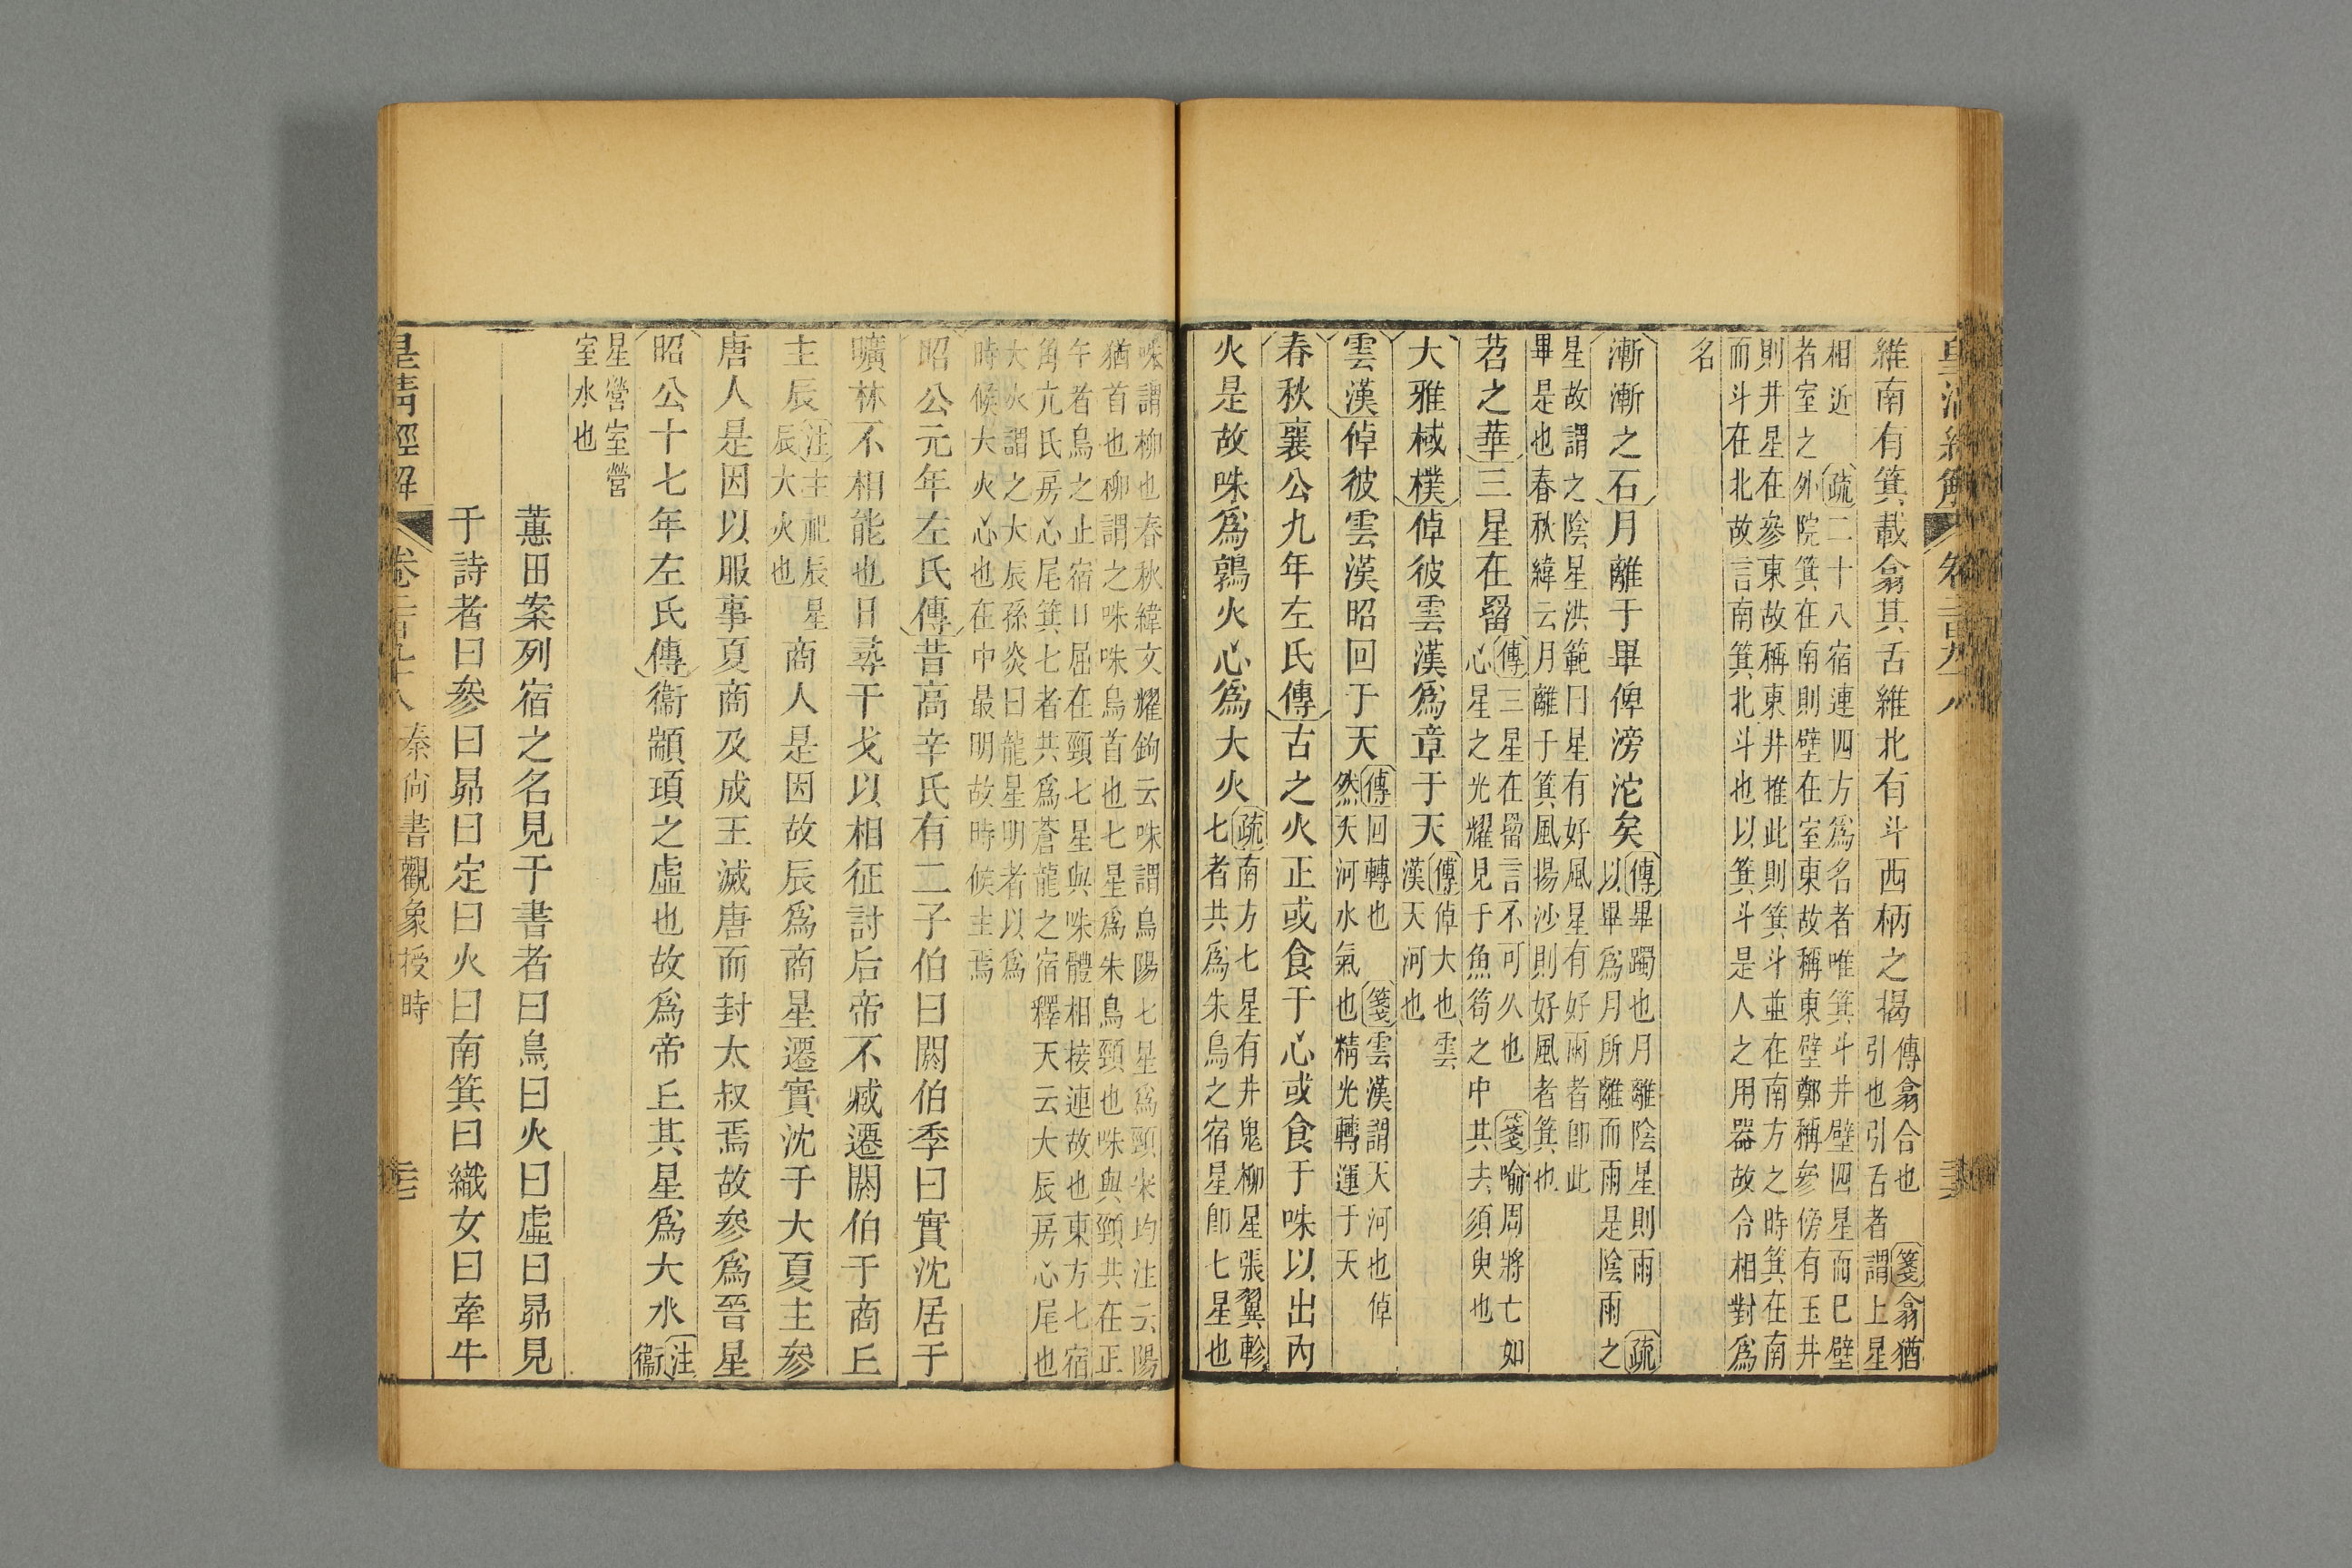 維南有箕載翕其舌維北有斗西柄之揭
傳翕合也 箋翕猶
引也引舌者謂上星
相近 疏二十八宿連四方爲名者唯箕斗井壁四星而已壁
者室之外院箕在南則壁在室東故稱東壁鄭稱參傍有玉井
則井星在參東故稱東井推此則箕斗並在南方之時箕在南
而斗在北故言南箕北斗也以箕斗是人之用器故令相對爲
名
漸漸之石月離于畢俾滂沱矣
傳畢躅也月離陰星則雨 疏
以畢爲月所離而雨是陰雨之
星故謂之陰星洪範曰星有好風星有好雨者卽此
畢是也春秋緯云月離于箕風揚沙則好風者箕也
苕之華三星在罶
傳三星在罶言不可久也 箋喻周將亡如
心星之光耀見于魚笱之中其去須臾也
大雅棫樸倬彼雲漢爲章于天
傳倬大也雲
漢天河也
雲漢倬彼雲漢昭回于天
傳回轉也 箋雲漢謂天河也倬
然天河水氣也精光轉運于天
春秋襄公九年左氏傳古之火正或食于心或食于咮以出內
火是故咮爲鶉火心爲大火
疏南方七星有井鬼柳星張翼軫
七者共爲朱鳥之宿星卽七星也
咮謂柳也春秋緯文耀鉤云咮謂鳥陽七星爲頸宋均注云陽
猶首也柳謂之咮咮鳥首也七星爲朱鳥頸也咮與頸共在正
午者鳥之止宿口屈在頸七星與咮體相接連故也東方七宿
角亢氐房心尾箕七者共爲蒼龍之宿釋天云大辰房心尾也
大火謂之大辰孫炎曰龍星明者以爲
時候大火心也在中最明故時候主焉
昭公元年左氏傳昔高辛氏有二子伯曰閼伯季曰實沈居于
曠林不相能也日尋干戈以相征討后帝不臧遷閼伯于商丘
主辰
注主祀辰星
辰大火也
商人是因故辰爲商星遷實沈于大夏主參
唐人是因以服事夏商及成王滅唐而封太叔焉故參爲晉星
昭公十七年左氏傳衞顓頊之虛也故爲帝丘其星爲大水
注
衞
星營室營
室水也
蕙田案列宿之名見于書者曰鳥曰火曰虛曰昴見
于詩者曰參曰昴曰定曰火曰南箕曰織女曰牽牛
皇清經解 卷二百九十八 秦尚書觀象授時